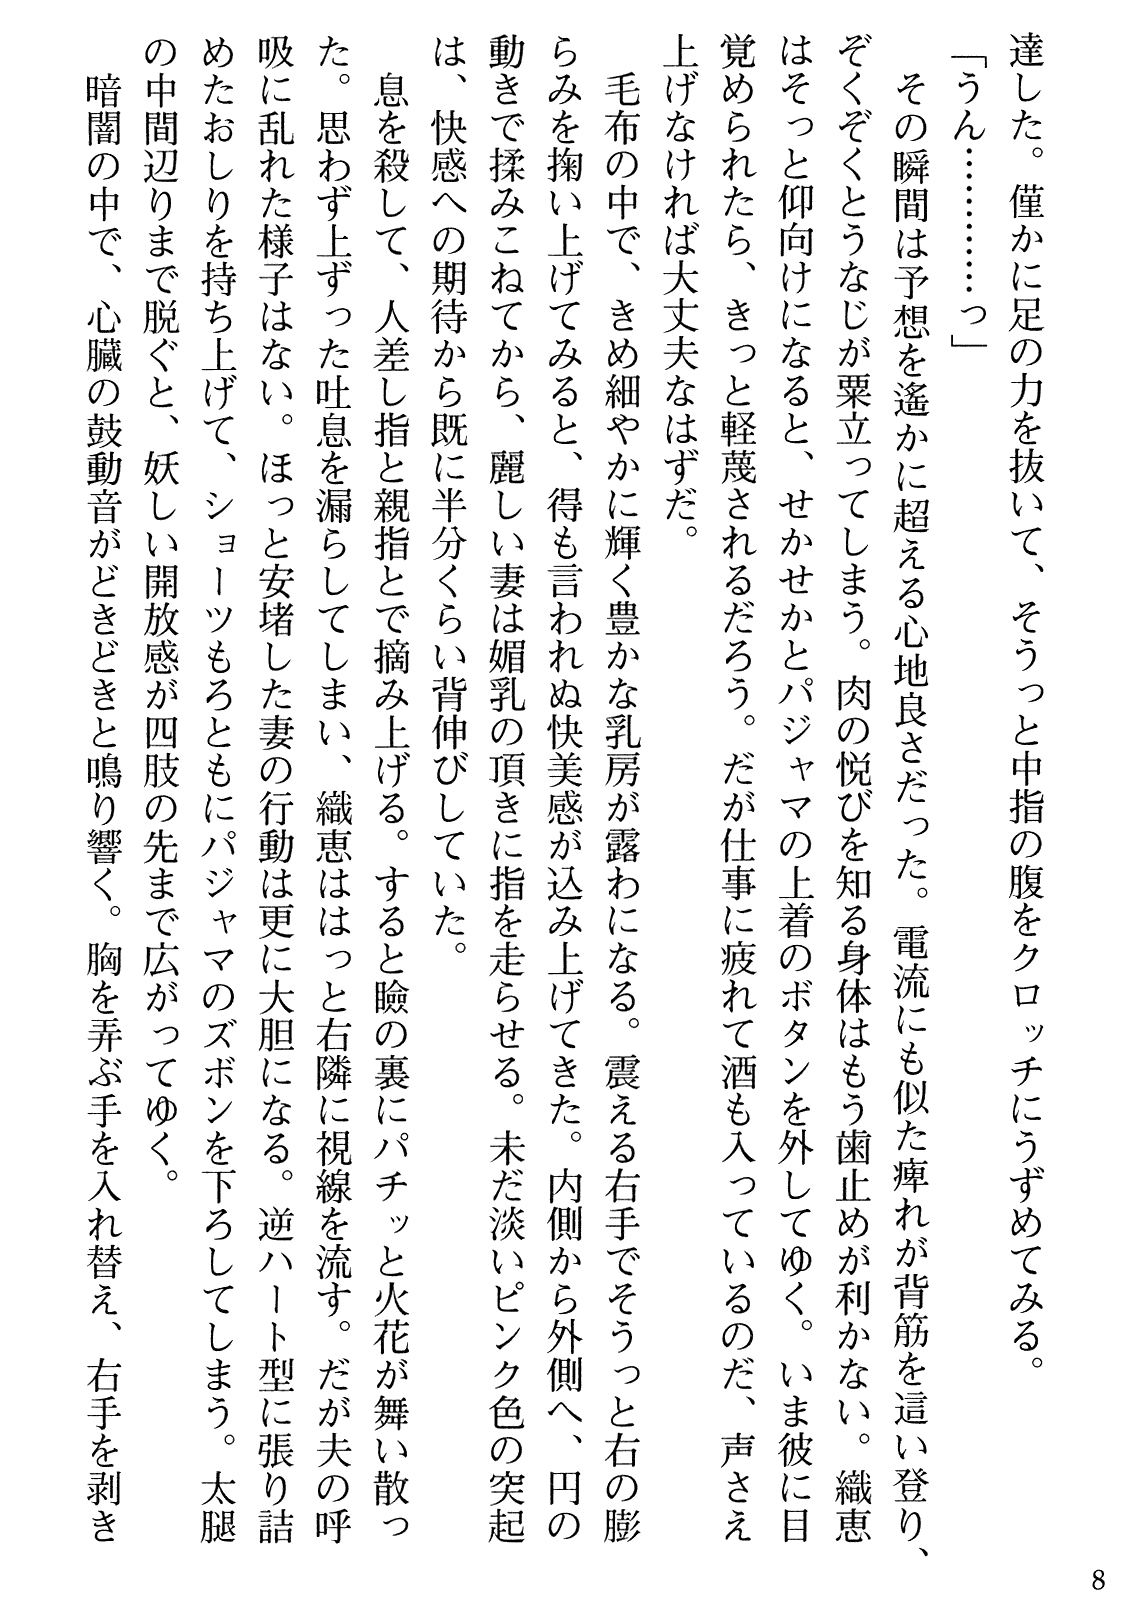 達した。僅かに足の力を抜いて、そうっと中指の腹をクロッチにうずめてみる。
「うん…………っ」
その瞬間は予想を遙かに超える心地良さだった。電流にも似た痺れが背筋を這い登り、
ぞくぞくとうなじが粟立ってしまう。肉の悦びを知る身体はもう歯止めが利かない。織恵
はそっと仰向けになると、せかせかとパジャマの上着のボタンを外してゆく。いま彼に目
覚められたら、きっと軽蔑されるだろう。だが仕事に疲れて酒も入っているのだ、声さえ
上げなければ大丈夫なはずだ。
毛布の中で、きめ細やかに輝く豊かな乳房が露わになる。震える右手でそうっと右の膨
らみを掬い上げてみると、得も言われぬ快美感が込み上げてきた。内側から外側へ、円の
動きで揉みこねてから、麗しい妻は媚乳の頂きに指を走らせる。未だ淡いピンク色の突起
は、快感への期待から既に半分くらい背伸びしていた。
息を殺して、人差し指と親指とで摘み上げる。すると瞼の裏にパチッと火花が舞い散っ
た。思わず上ずった吐息を漏らしてしまい、織恵ははっと右隣に視線を流す。だが夫の呼
吸に乱れた様子はない。ほっと安堵した妻の行動は更に大胆になる。逆ハート型に張り詰
めたおしりを持ち上げて、ショーツもろともにパジャマのズボンを下ろしてしまう。太腿
の中間辺りまで脱ぐと、妖しい開放感が四肢の先まで広がってゆく。
暗闇の中で、心臓の鼓動音がどきどきと鳴り響く。胸を弄ぶ手を入れ替え、右手を剥き
8